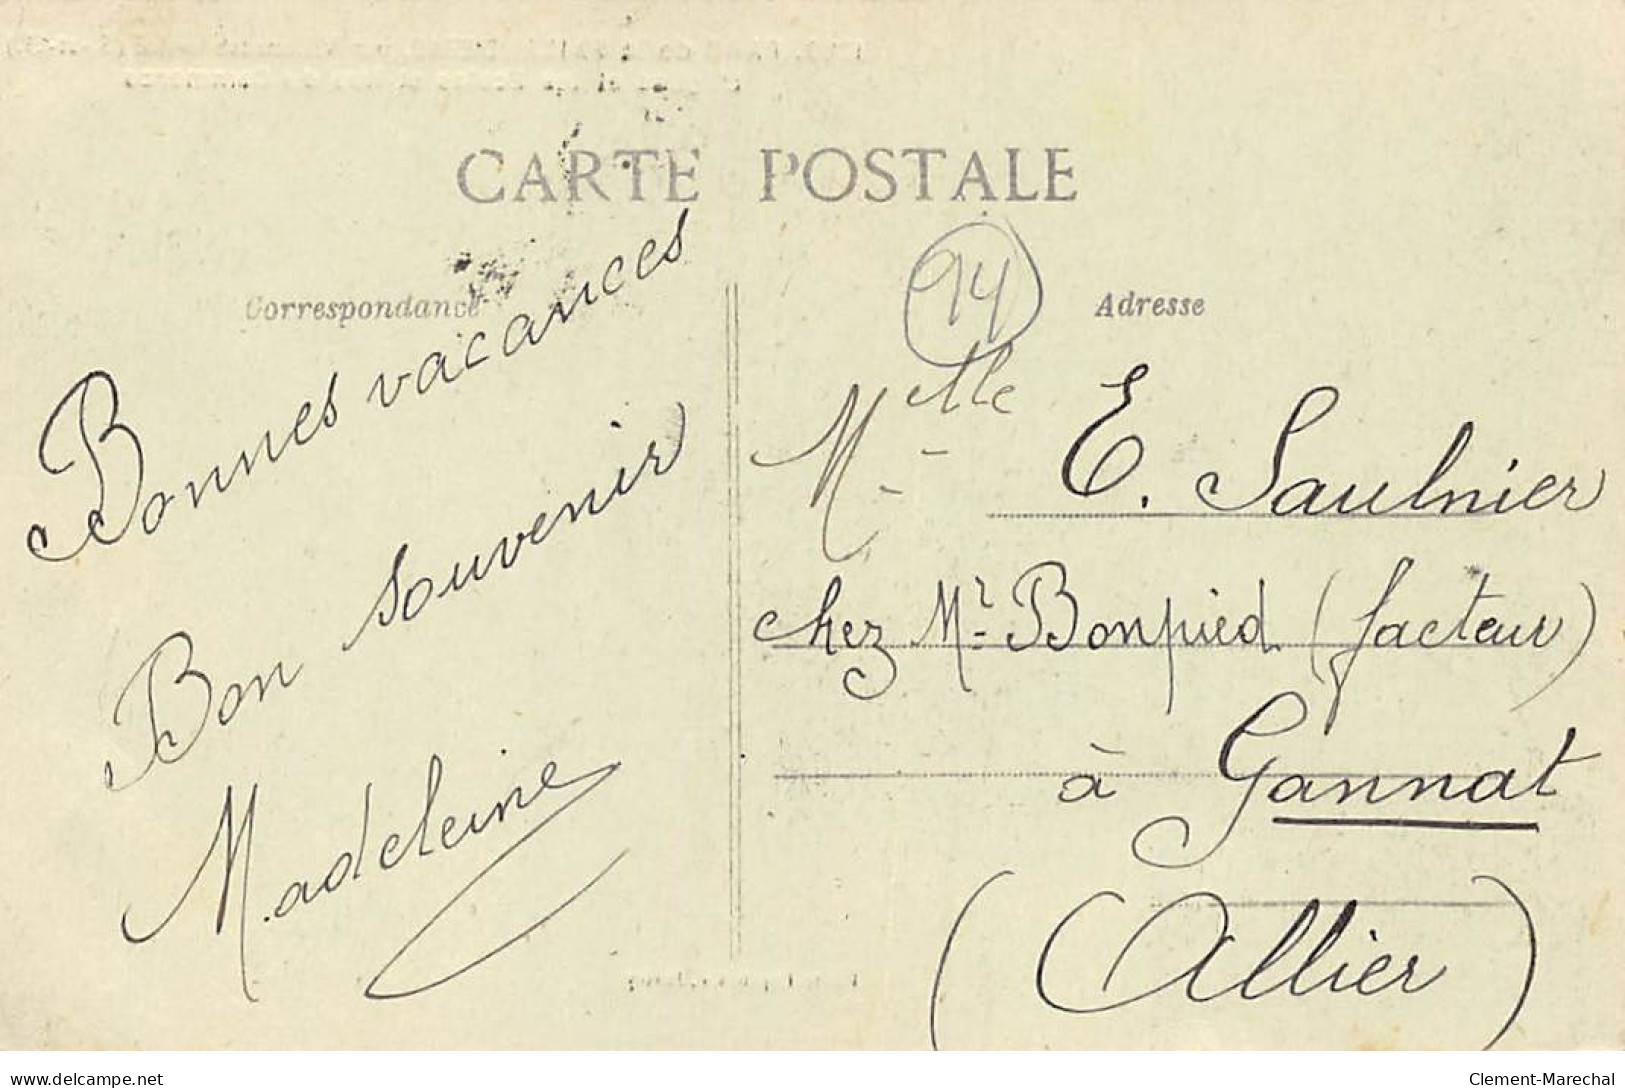 CARTE POSTALE
Correspondance
Bonnes vacances
Bon souvenir
Madeleine
94
Adresse
Melle E. Saulnier
chez Mr Bonpied (facteur)
à Gannat
(Allier)
www.delcampe.net
Clement-Marechal